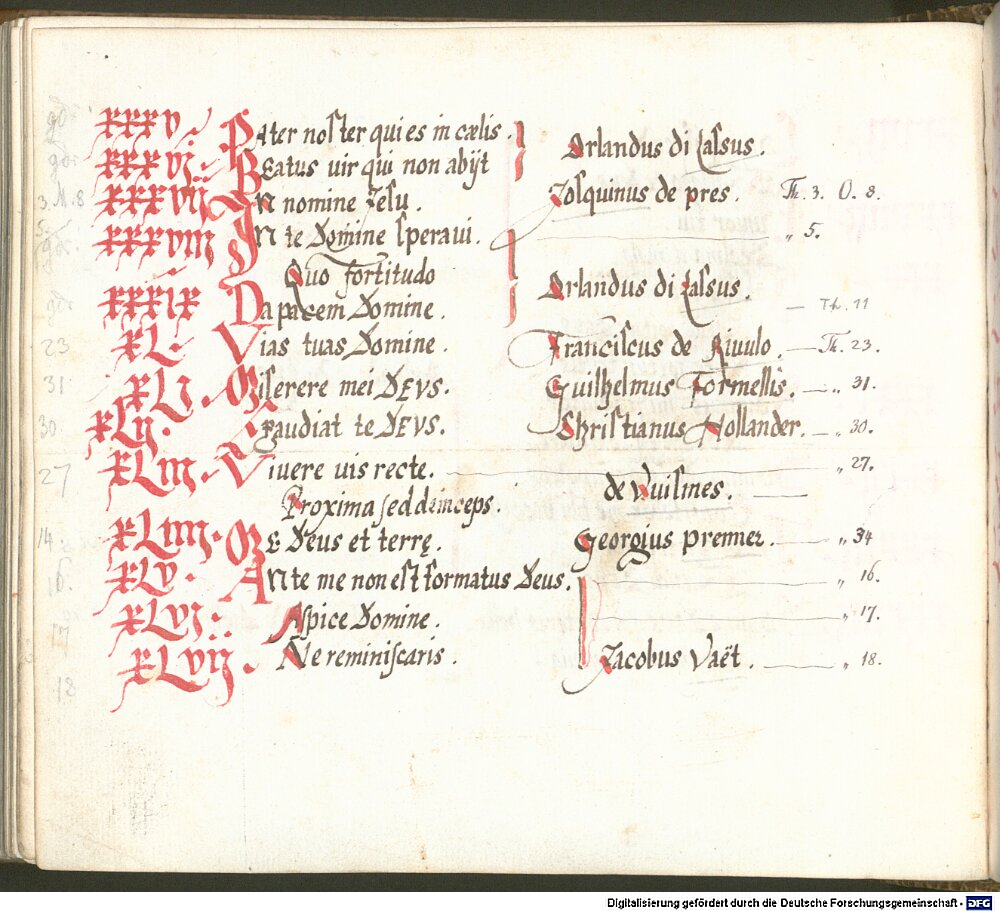 XXXV. Pater noster qui es in cælis.
XXXVI. Beatus uir qui non abijt Orlandus di Lassus.
XXXVII In nomine Jesu. Josquinus de pres. Th. 3. O. 8.
XXXVIII In te Domine speraui. „ 5.
Quo fortitudo
XXXIX Da pacem Domine. Orlandus di Lassus. Th. 11
XL. Vias tuas Domine. Franciscus de Riuulo. Th. 23.
XLI. Miserere mei DEVS. Guilhelmus Formellis. „ 31.
XLII. Exaudiat te DEVS. Christianus Hollander. „ 30.
XLIII. Viuere uis recte. „ 27.
Proxima sed deinceps. de Vuismes.
XLIIII. Me Deus et terrę. Georgius prenner. „ 34
XLV. Ante me non est formatus Deus. „ 16.
XLVI. Aspice Domine. „ 17.
XLVII. Ne reminiscaris. Jacobus Vaët. „ 18.
23
31
30
27
14
16.
17
18
Digitalisierung gefördert durch die Deutsche Forschungsgemeinschaft - DFG